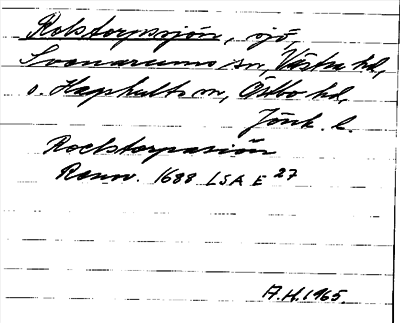 Rolstorpssjön, sjö,
Svenarums sn, Västra hd,
o. Hagshults sn, Östbo hd,
Jönk. l.
Roelstorpasiön
Rann. 1688 LSA E 27
A.H. 1965.